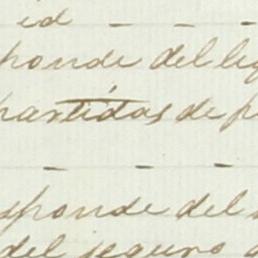 id — — —
ponde del leg
partidas de p
— — —
sponde del s
del seguro d